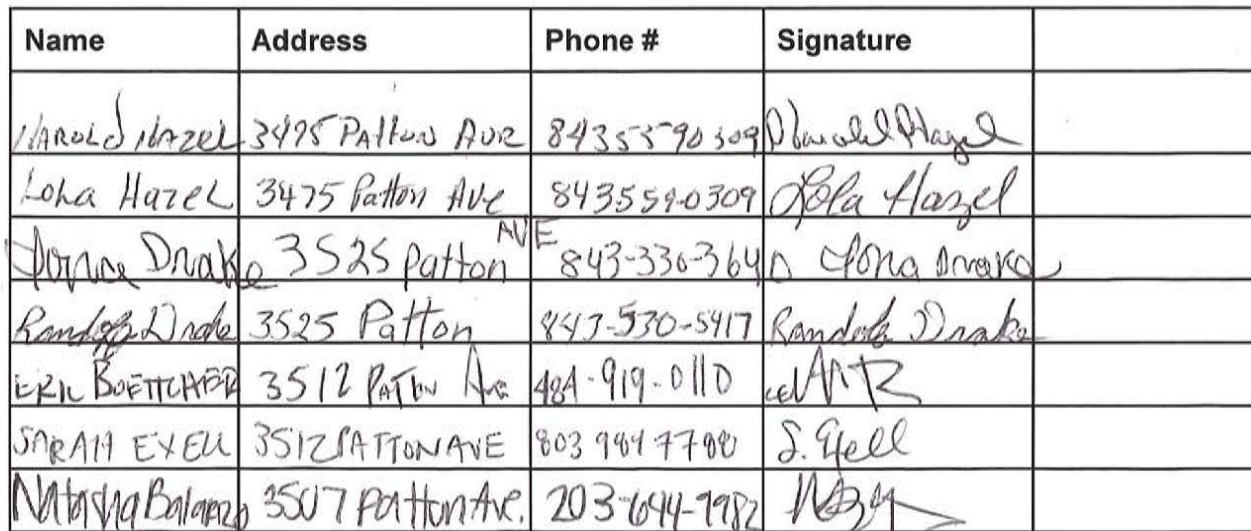 Name Address Phone # Signature
HAROLD HAZEL 3475 Patton Ave 8435590309 Harold Hazel
Lola Hazel 3475 Patton Ave 8435590309 Lola Hazel
Drake 3525 Patton AVE 843-330-3640 Drake
Randolf Drake 3525 Patton 843-530-5417 Randolf Drake
ERIC BOETTCHER 3512 PATTON Ave 484-919-0110
SARAH EXELL 3512 PATTON AVE 803 984 7788 S. Exell
Natasha 3507 Patton Ave. 203-644-7982